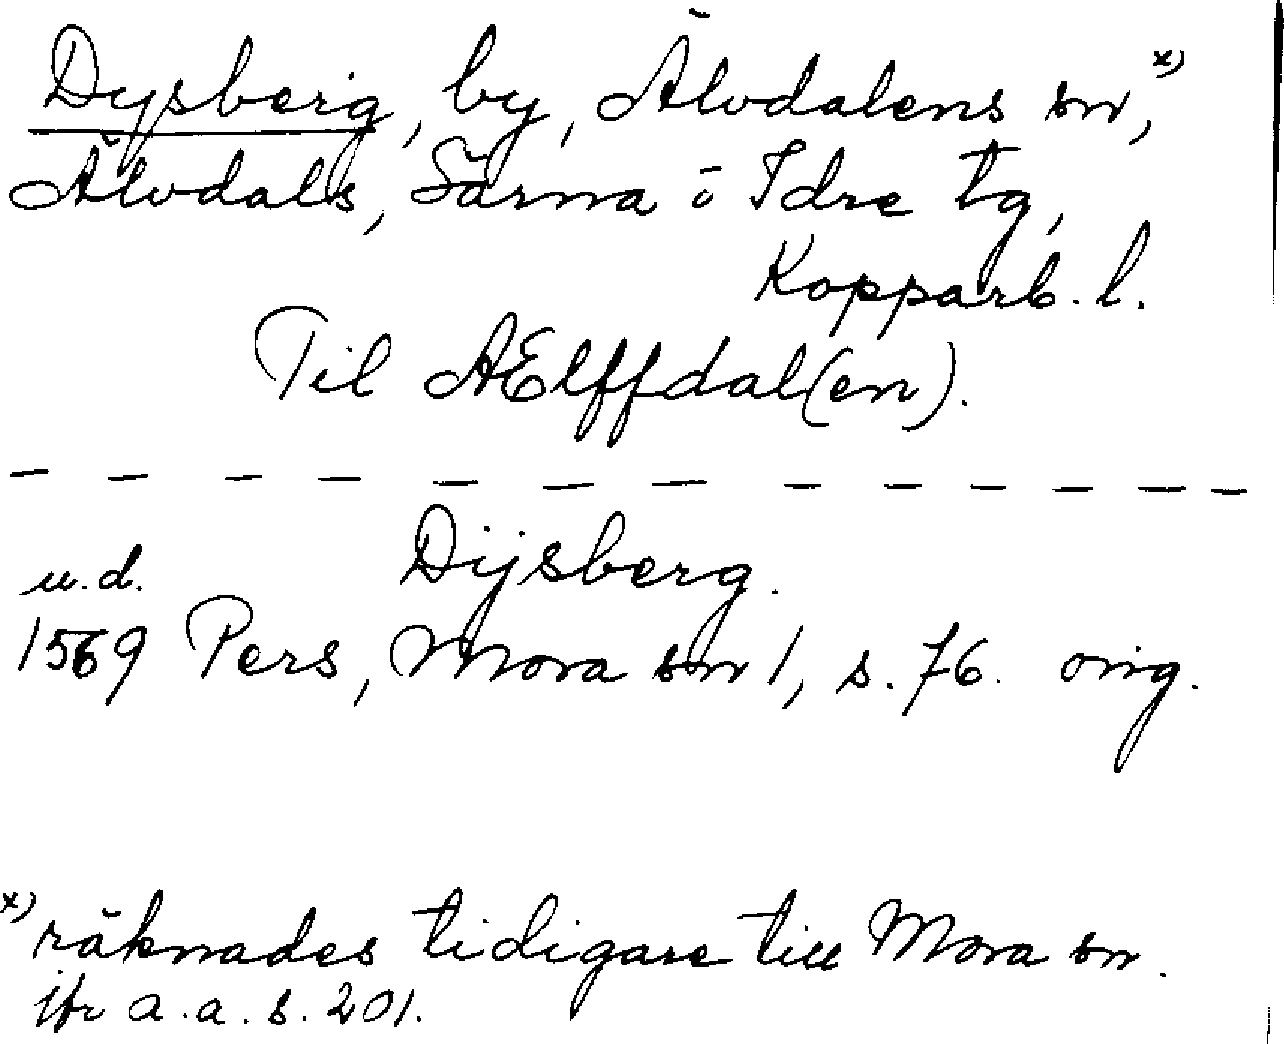 Dysberg, by, Älvdalens sn, x)
Älvdals, Särna o Idre tg,
Kopparb. l.
Til AElffdal(en).
— — — — — — — — — — — — —
u.d. Dijsberg.
1569 Pers, Mora sn 1, s. 76. orig.
x) räknades tidigare till Mora sn.
jfr a.a.s. 201.